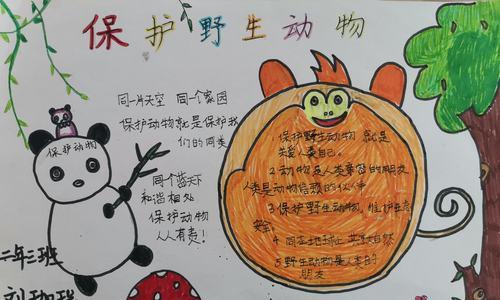 保护野生动物
同一片天空 同一个家园
保护动物就是保护我
们的同类
保护动物
同一个蓝天下
和谐相处
保护动物
人人有责！
1.保护野生动物 就是
关爱人类自己。
2.动物是人类亲密的朋友
人类是动物信赖的伙伴
3.保护野生动物，维护生态
安全
4 同在地球上 共享大自然
5 野生动物是人类的
朋友
二年三班